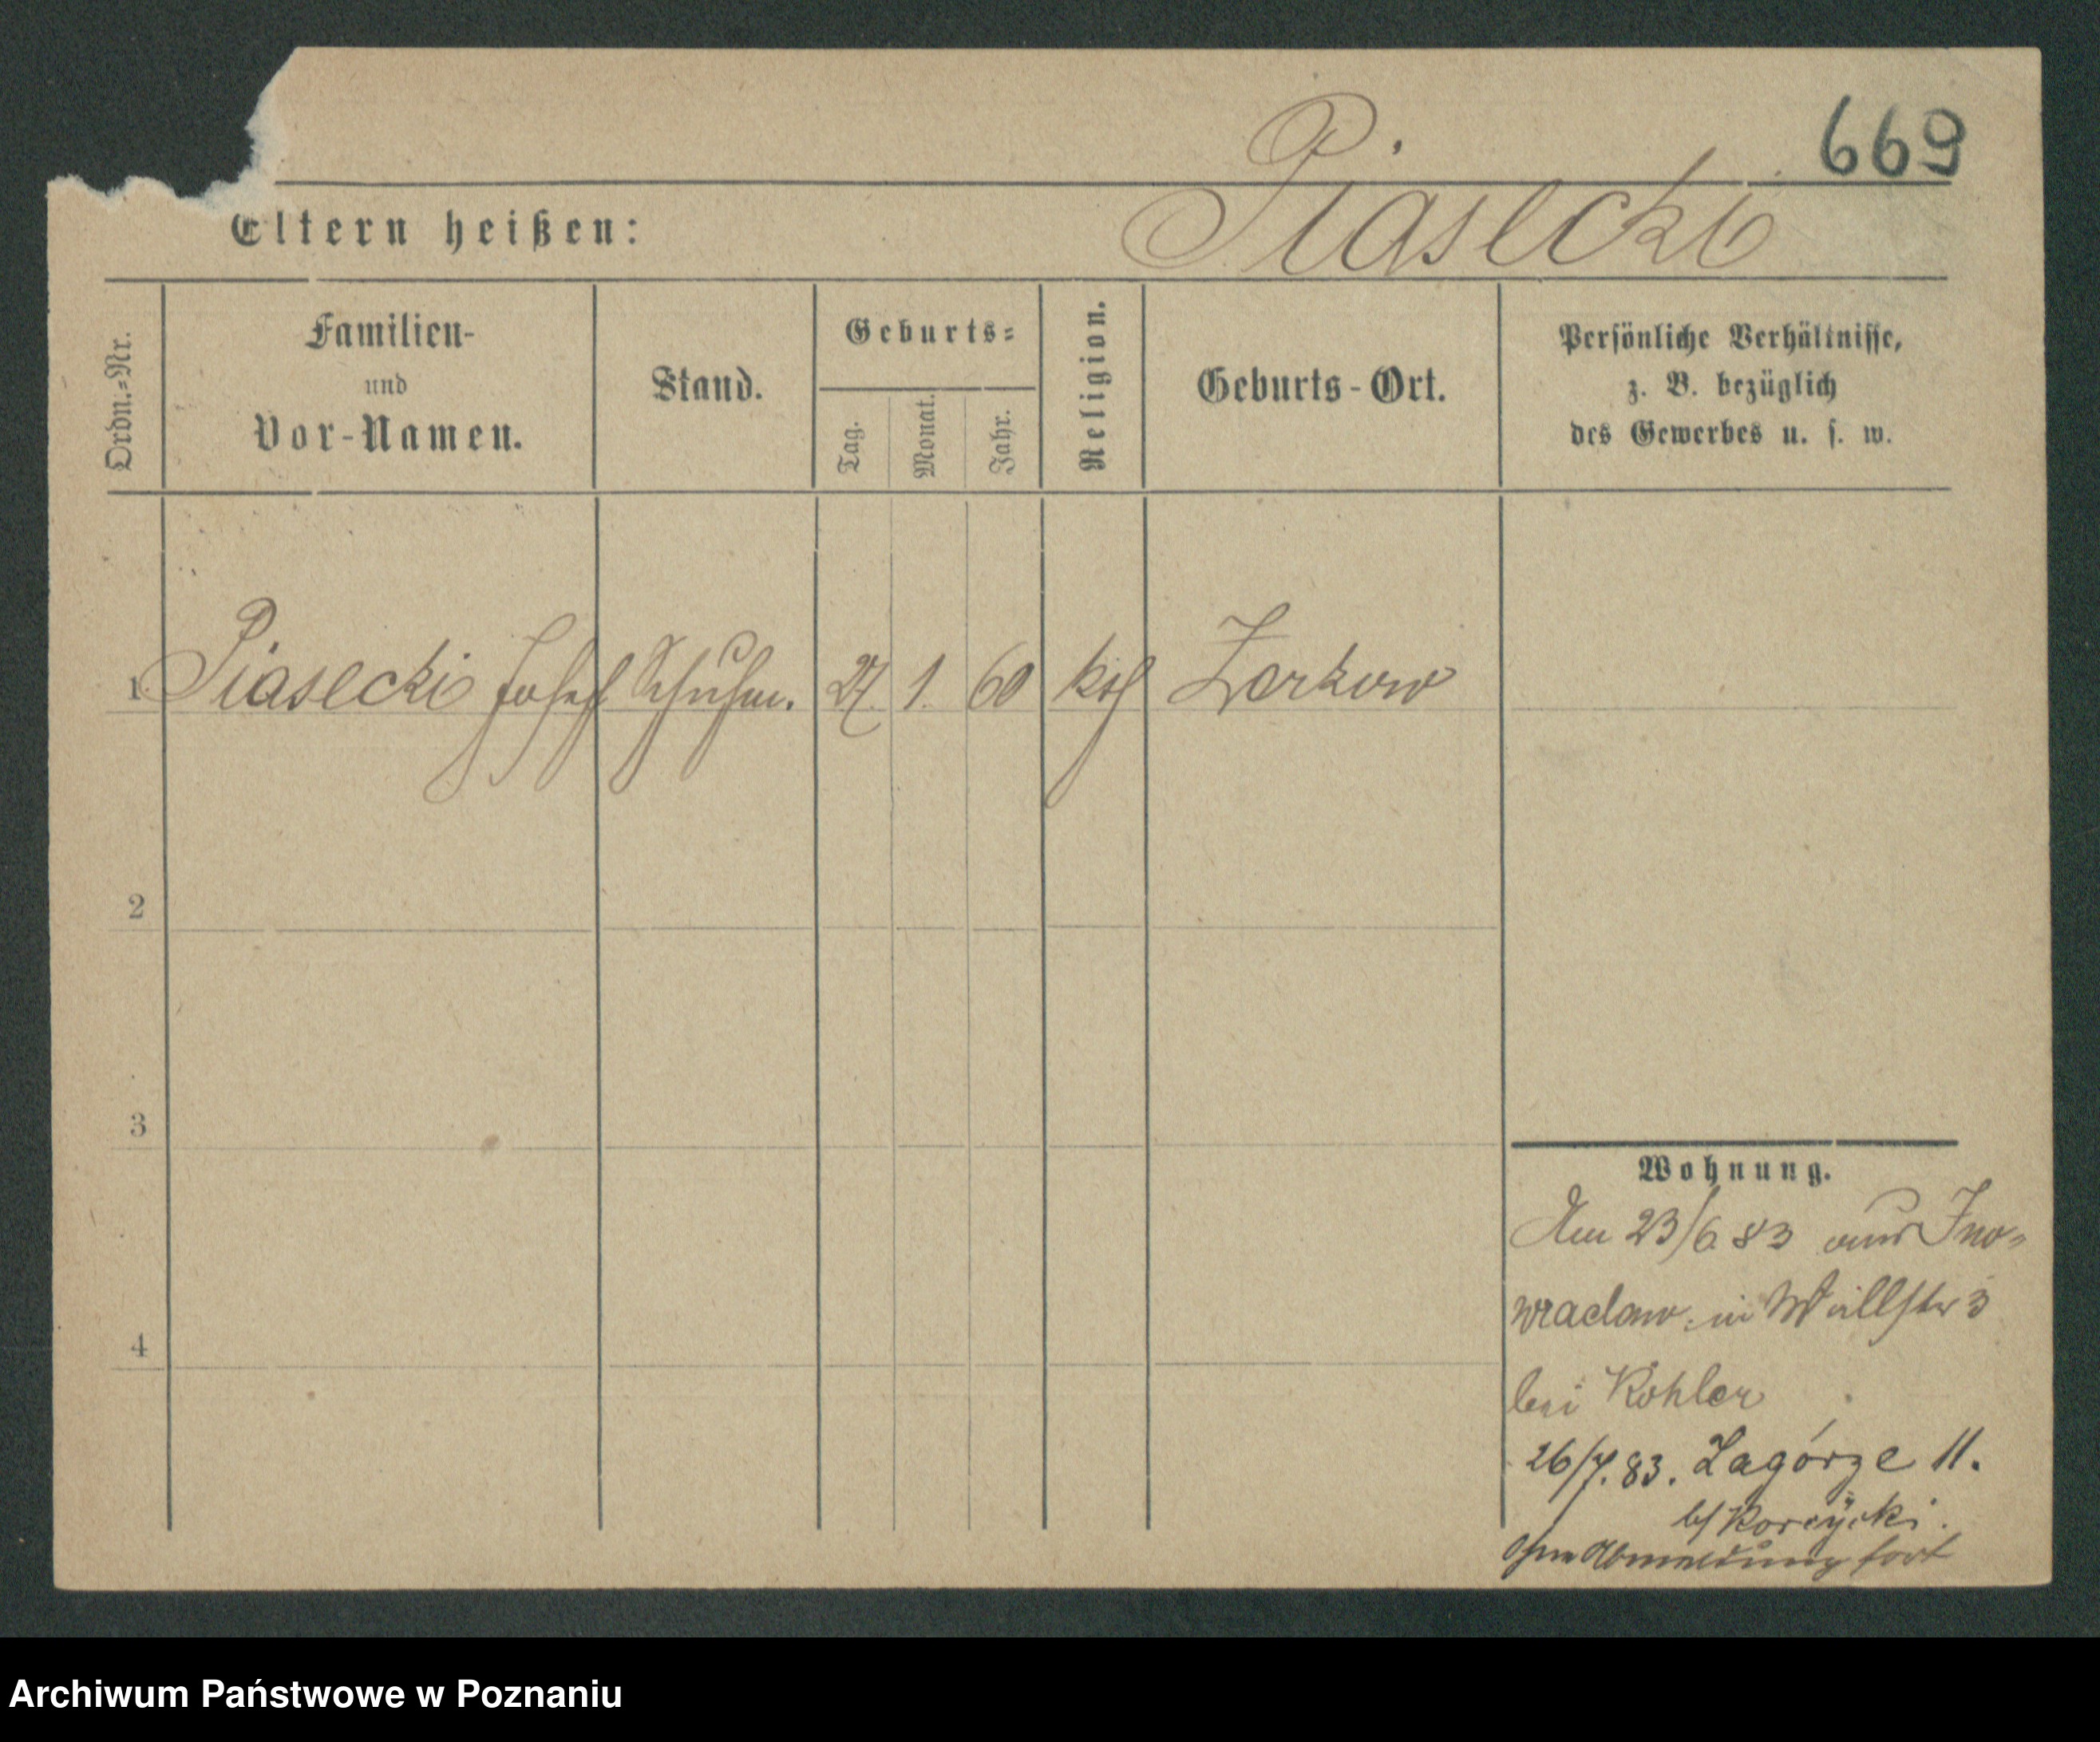 669
Piasecki
Eltern heißen:
Ordn.-Nr.
Familien-
und
Vor-Namen.
Stand.
Geburts-
Tag.
Monat.
Jahr.
Religion.
Geburts-Ort.
Persönliche Verhältnisse,
z. B. bezüglich
des Gewerbes u. s. w.
1 Piasecki Josef Schuhm. 27. 1. 60 kth Zerkow
2
3
4
Wohnung.
Am 23/6 83 aus Ino-
wraclaw in Wallstr 3
bei Köhler
26/7. 83. Zagórze 11.
b/
ohne Abmeldung fort
Archiwum Państwowe w Poznaniu